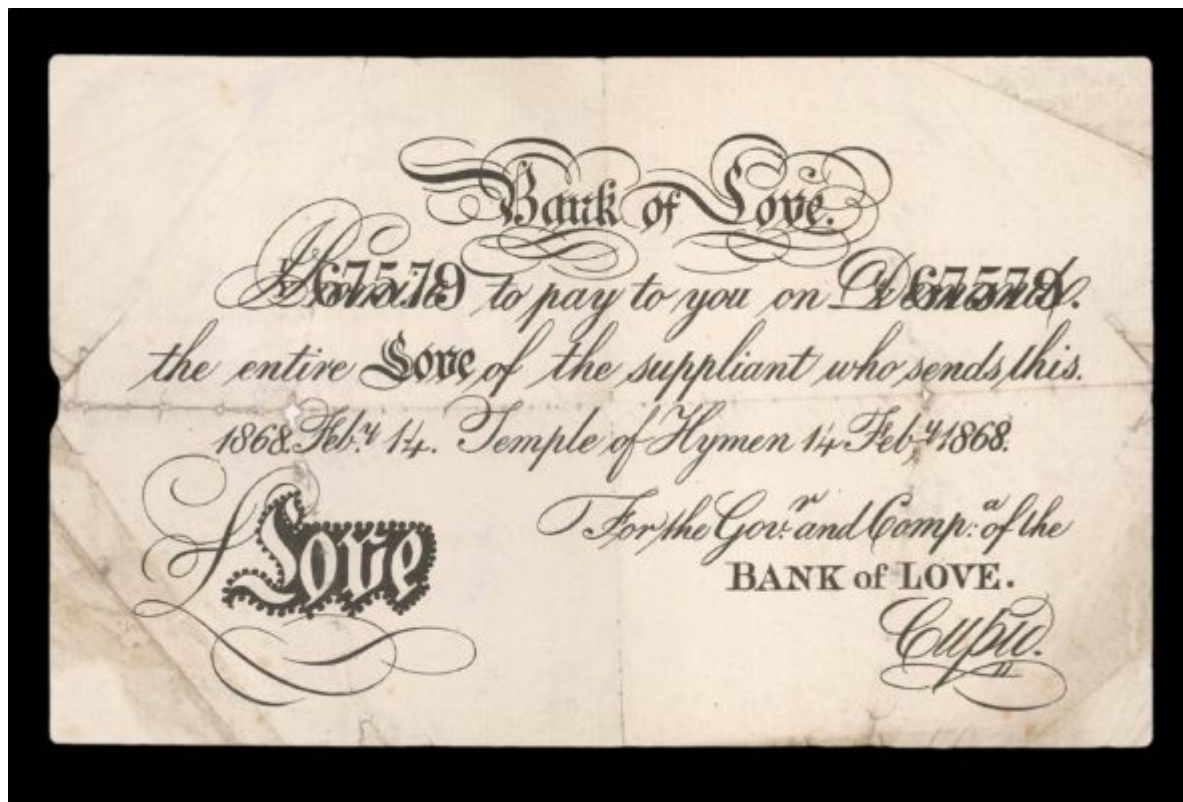 Bank of Love.
I Promise 67579 to pay to you on Demand 67579.
the entire Love of the suppliant who sends this.
1868. Feb.y 14. Temple of Hymen 14 Feb.y 1868.
For the Gov.r and Comp.a of the
£ Love
BANK of LOVE.
Cupid.